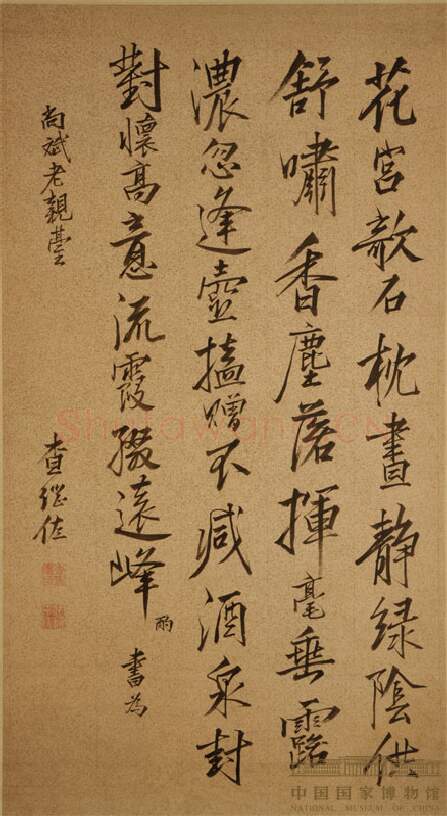 花宮欹石枕晝靜綠陰供
舒嘯香塵落揮毫垂露
濃忽逢壺榼贈不減酒泉封
對懷高意流霞醊遠峰 酌 書為
尚斌老親臺
查繼佐
中国国家博物馆
NATIONAL MUSEUM OF CHINA